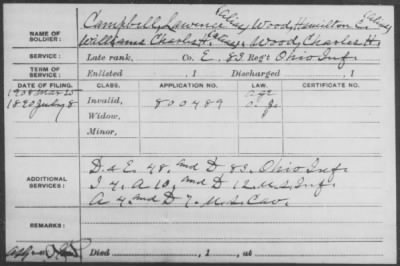 NAME OF SOLDIER:
Campbell, Lawrence (alias) Wood, Hamilton E. (alias)
Williams Charles H. (alias), Wood, Charles H.
SERVICE: Late rank, Co. E, 83 Reg't Ohio Inf.
TERM OF SERVICE: Enlisted , 1 Discharged , 1
DATE OF FILING. CLASS. APPLICATION NO. LAW. CERTIFICATE NO.
1908 Mar 25 age
1890 July 8 Invalid, 800489
Widow,
Minor,
ADDITIONAL SERVICES:
D & E. 48, and D, 83, Ohio Inf.
I 4, A 10, and D 12 U.S. Inf.
A 4, and D 7, U.S. Cav.
REMARKS:
Died , 1 , at